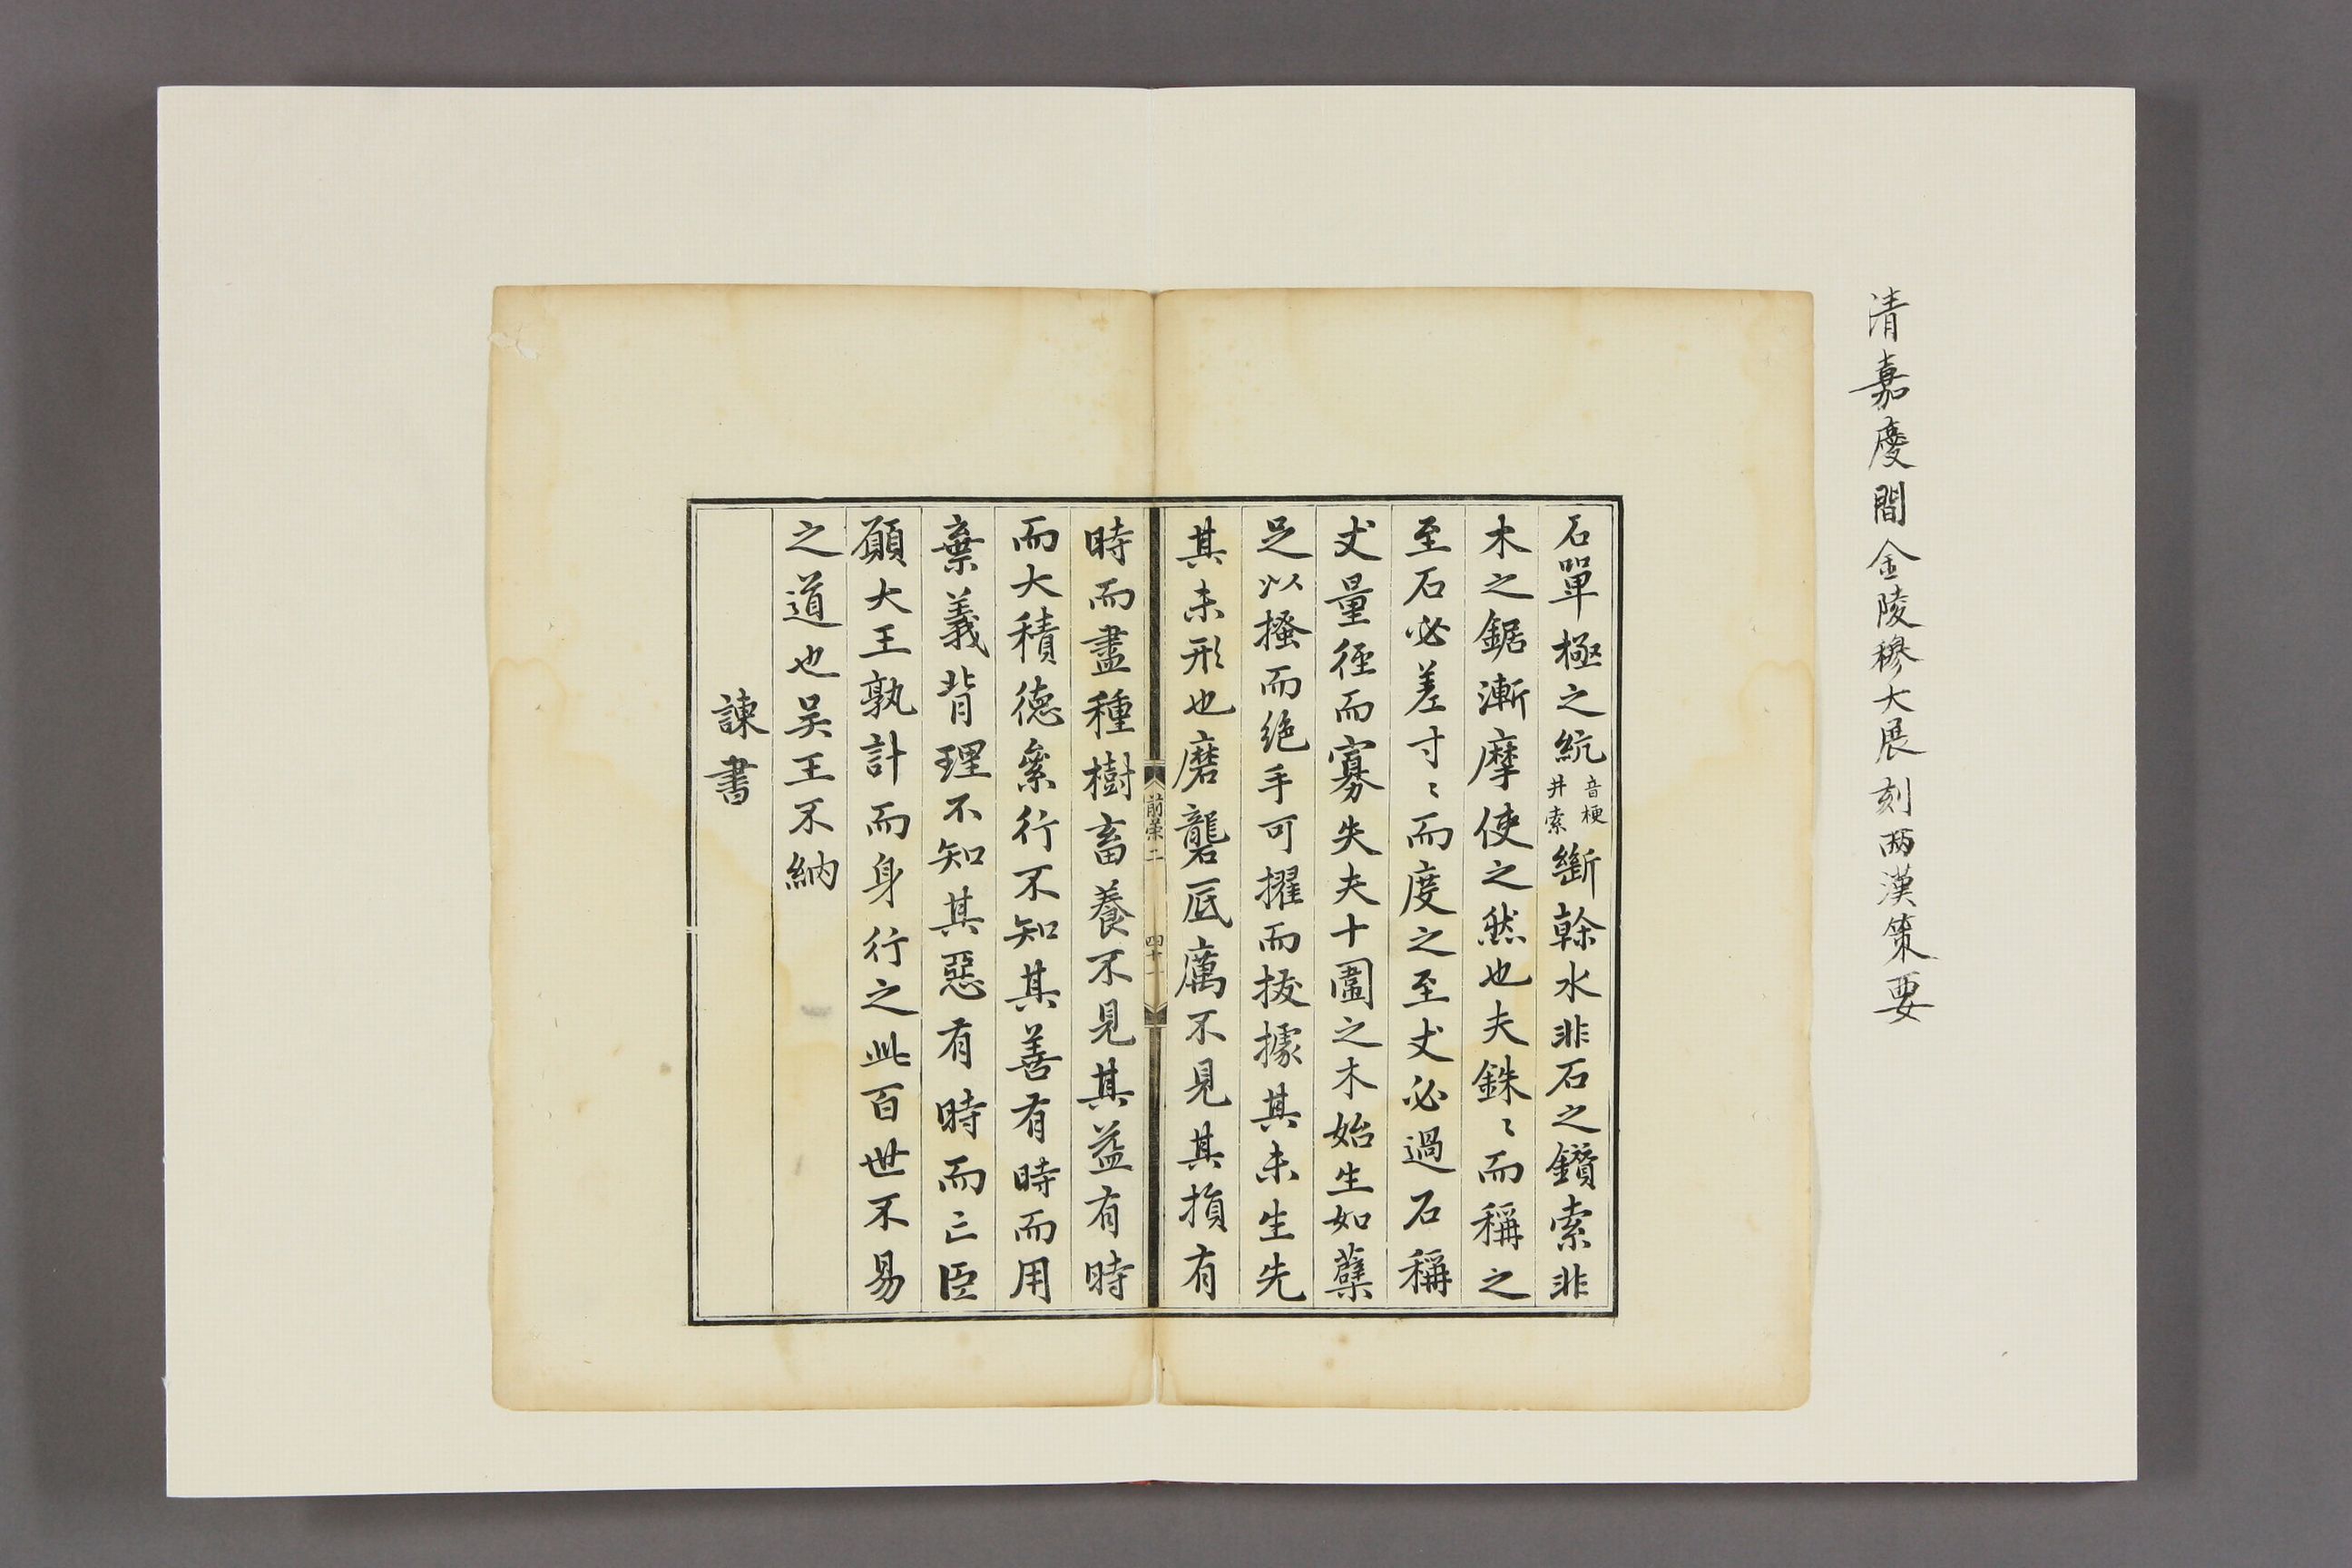 清嘉慶間金陵穆大展刻兩漢策要
石單極之綂音梗井索斷榦水非石之鑽索非
木之鋸漸摩使之然也夫銖〻而稱之
至石必差寸〻而度之至丈必過石稱
丈量徑而寡失夫十圍之木始生如蘖
足以搔而絶手可擢而拔據其未生先
其未形也磨礱厎厲不見其損有
前策二 四十一
時而盡種樹畜養不見其益有時
而大積德絫行不知其善有時而用
棄義背理不知其惡有時而亡臣
願大王孰計而身行之此百世不易
之道也吴王不納
諫書